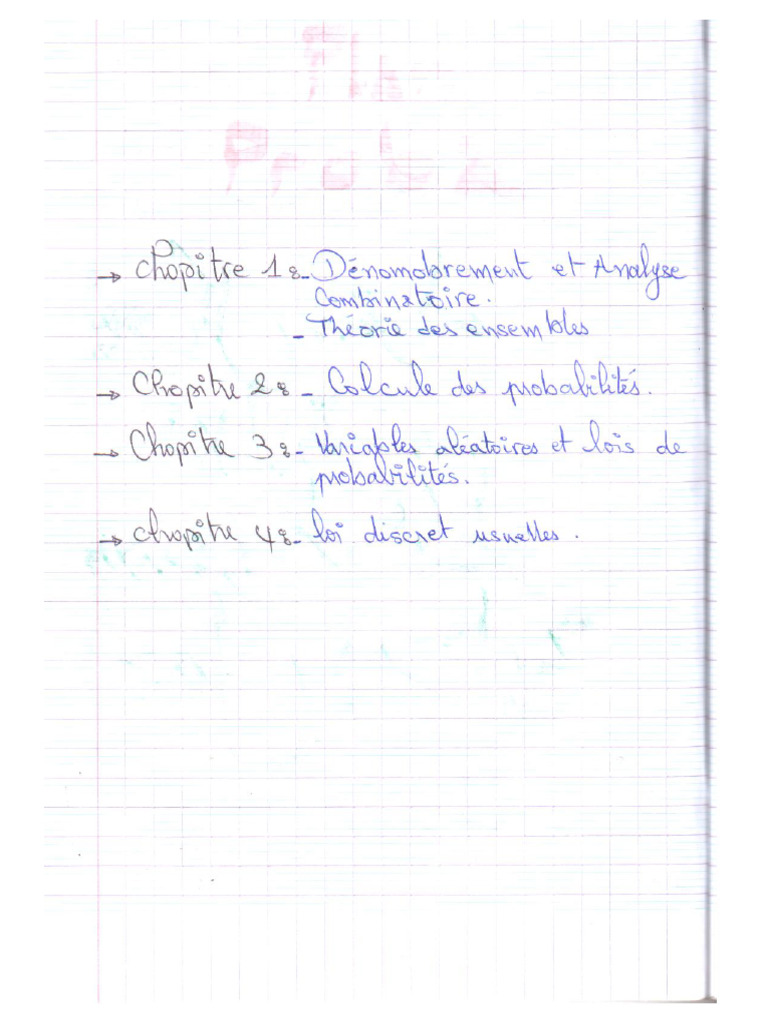 → Chapitre 1 : - Dénombrement et Analyse
Combinatoire.
- Théorie des ensembles
→ Chapitre 2 : - Calcule des probabilités.
→ Chapitre 3 : - Variables aléatoires et lois de
probabilités.
→ Chapitre 4 : - loi discret usuelles.